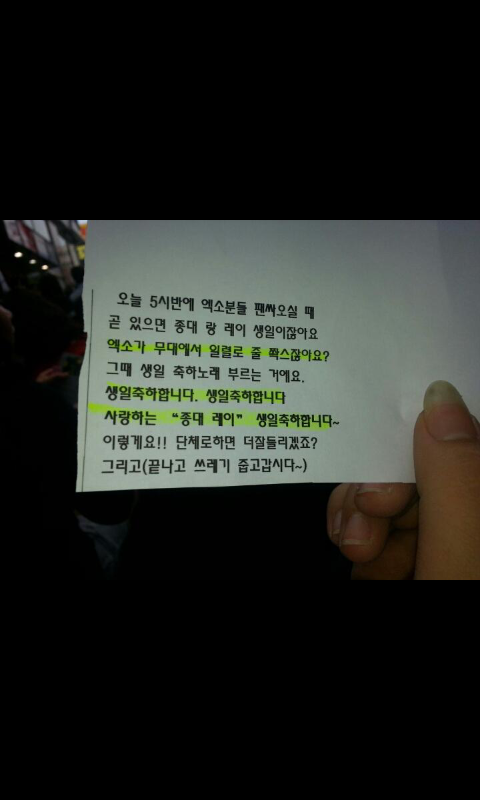 오늘 5시반에 엑소분들 팬싸오실 때
곧 있으면 종대 랑 레이 생일이잖아요
엑소가 무대에서 일렬로 줄 쫙스잖아요?
그때 생일 축하노래 부르는 거에요.
생일축하합니다. 생일축하합니다
사랑하는 “종대 레이” 생일축하합니다~
이렇게요!! 단체로하면 더잘들리겠죠?
그리고(끝나고 쓰레기 줍고갑시다~)